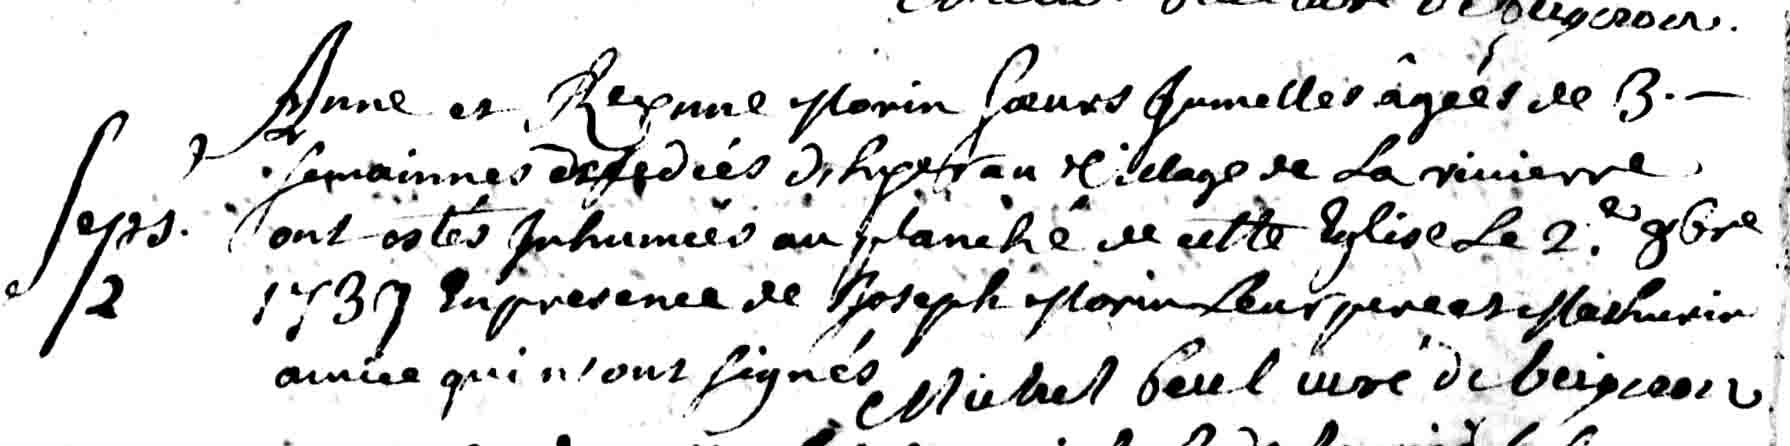 Anne et Reynne Morin Sœurs Jumelles âgées de 3.-
semainnes decedées d'hyer au Village de La rivierre
Sept. 2
ont estés Inhumées au planché de cette Eglise Le 2.e 9bre
1737 En presence de Joseph Morin Leur pere et Mathurin
qui n'ont signés
Michel curé de